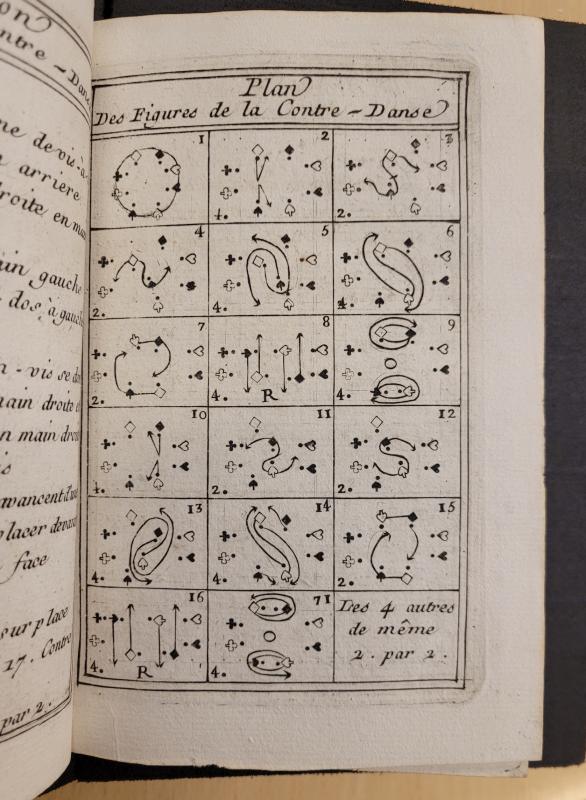 ontre - Dans
me de vis-à-
arriere
droite en main
ain gauche
dos, à gauche
n - vis se do
main droite e
n main droit
is
avancent d'un
placer devant
face
sur place
17. Contre
par 2.
Plan
Des Figures de la Contre - Danse
1 2 3
4. 2.
4 5 6
2. 4. 4.
7 8 9
2. 4. R 4.
10 11 12
4. 2. 2.
13 14 15
4. 4. 2.
16 71
4. R 4.
Les 4 autres
de même
2. par 2.